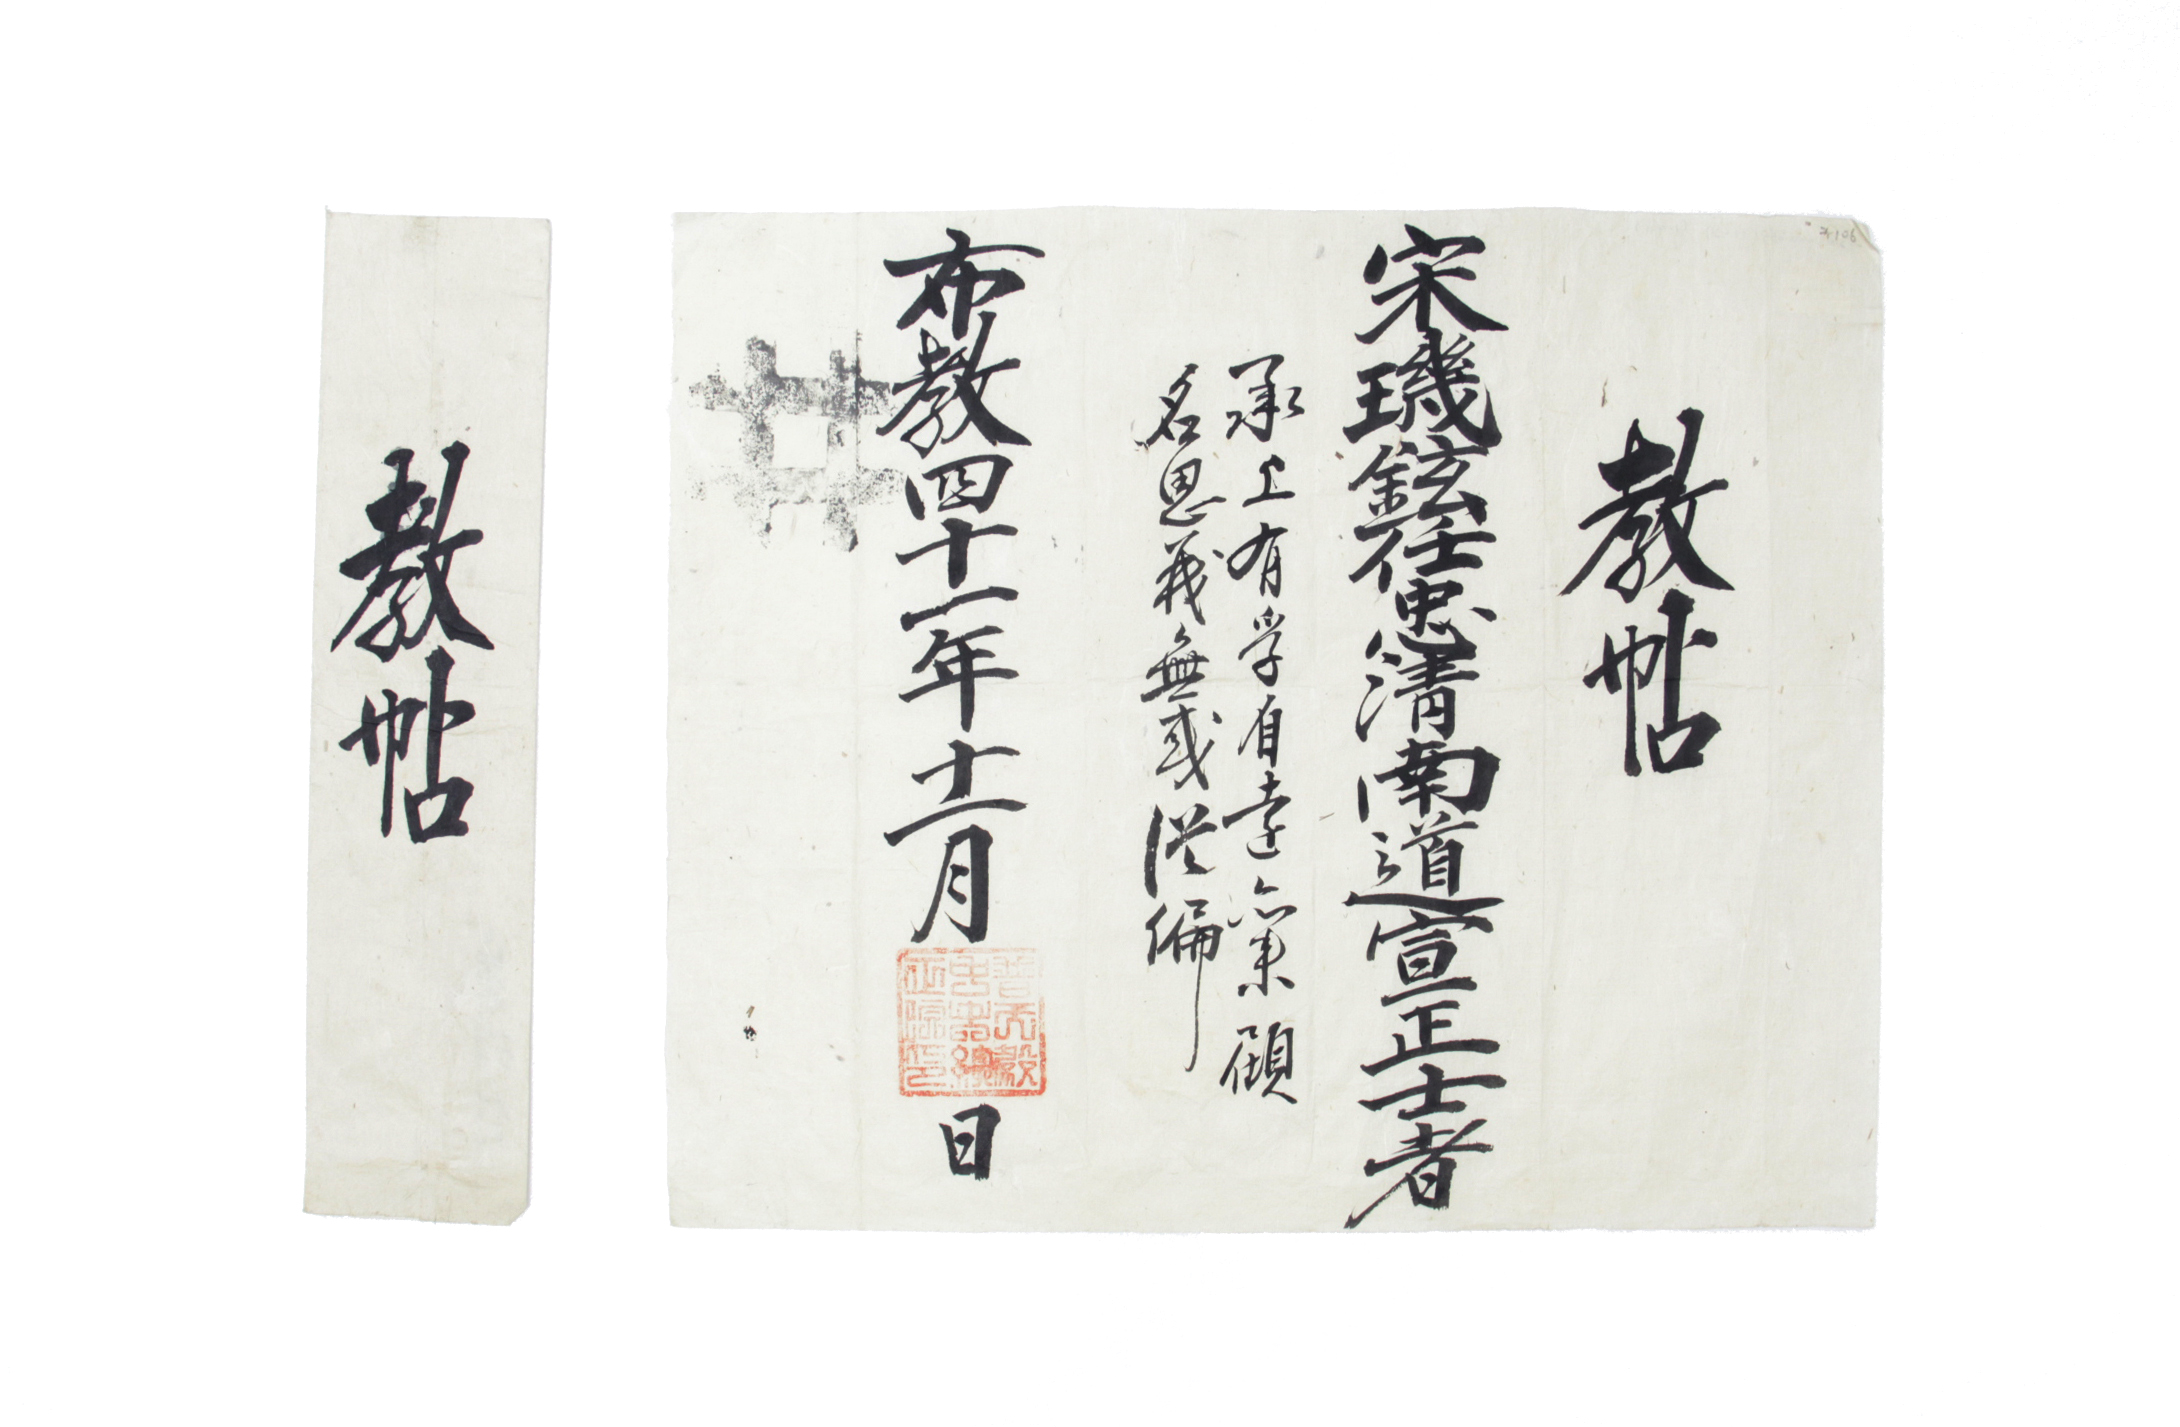 教帖
宋璣鉉任忠清南道宣正士者
承上有孚自達業顧
名思義無或從偏
布教四十一年十二月 日
教帖